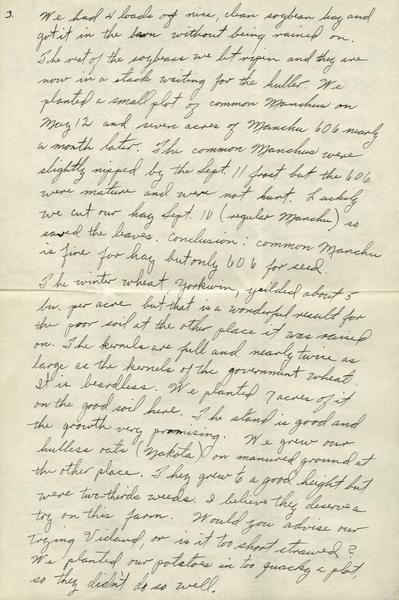 3.
We had 4 loads of nice, clean soybean hay and
got it in the barn without being rained on.
The rest of the soybeans we let ripen and they are
now in a stack waiting for the huller. We
planted a small plot of common Manchus on
May 12 and seven acres of Manchu 606 nearly
a month later. The common Manchus were
slightly nipped by the Sept. 11 frost but the 606
were mature and were not hurt. Luckily
we cut our hay Sept. 10 (regular Manchu) so
saved the leaves. Conclusion: common Manchu
is fine for hay but only 606 for seed.
The winter wheat, Yorkwin, yeilded about 5
bu. per acre but that is a wonderful result for
the poor soil at the other place it was raised
on. The kernels are full and nearly twice as
large as the kernels of the government wheat.
It is beardless. We planted 7 acres of it
on the good soil here. The stand is good and
the growth very promising. We grew our
hulless oats (Nakota) on manured ground at
the other place. They grew to a good height but
were two-thirds weeds. I believe they deserve a
try on this farm. Would you advise our
trying Vicland, or is it too short strawed?
We planted our potatoes in too quacky a plot,
so they didn't do so well.